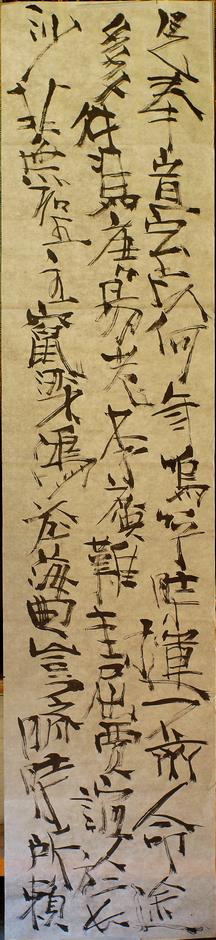 見奉宣室以何年嗚呼時運不齊命途
多舛馮唐易老李廣難封屈賈誼於長
沙非無聖主竄梁鴻於海曲豈乏明時所賴